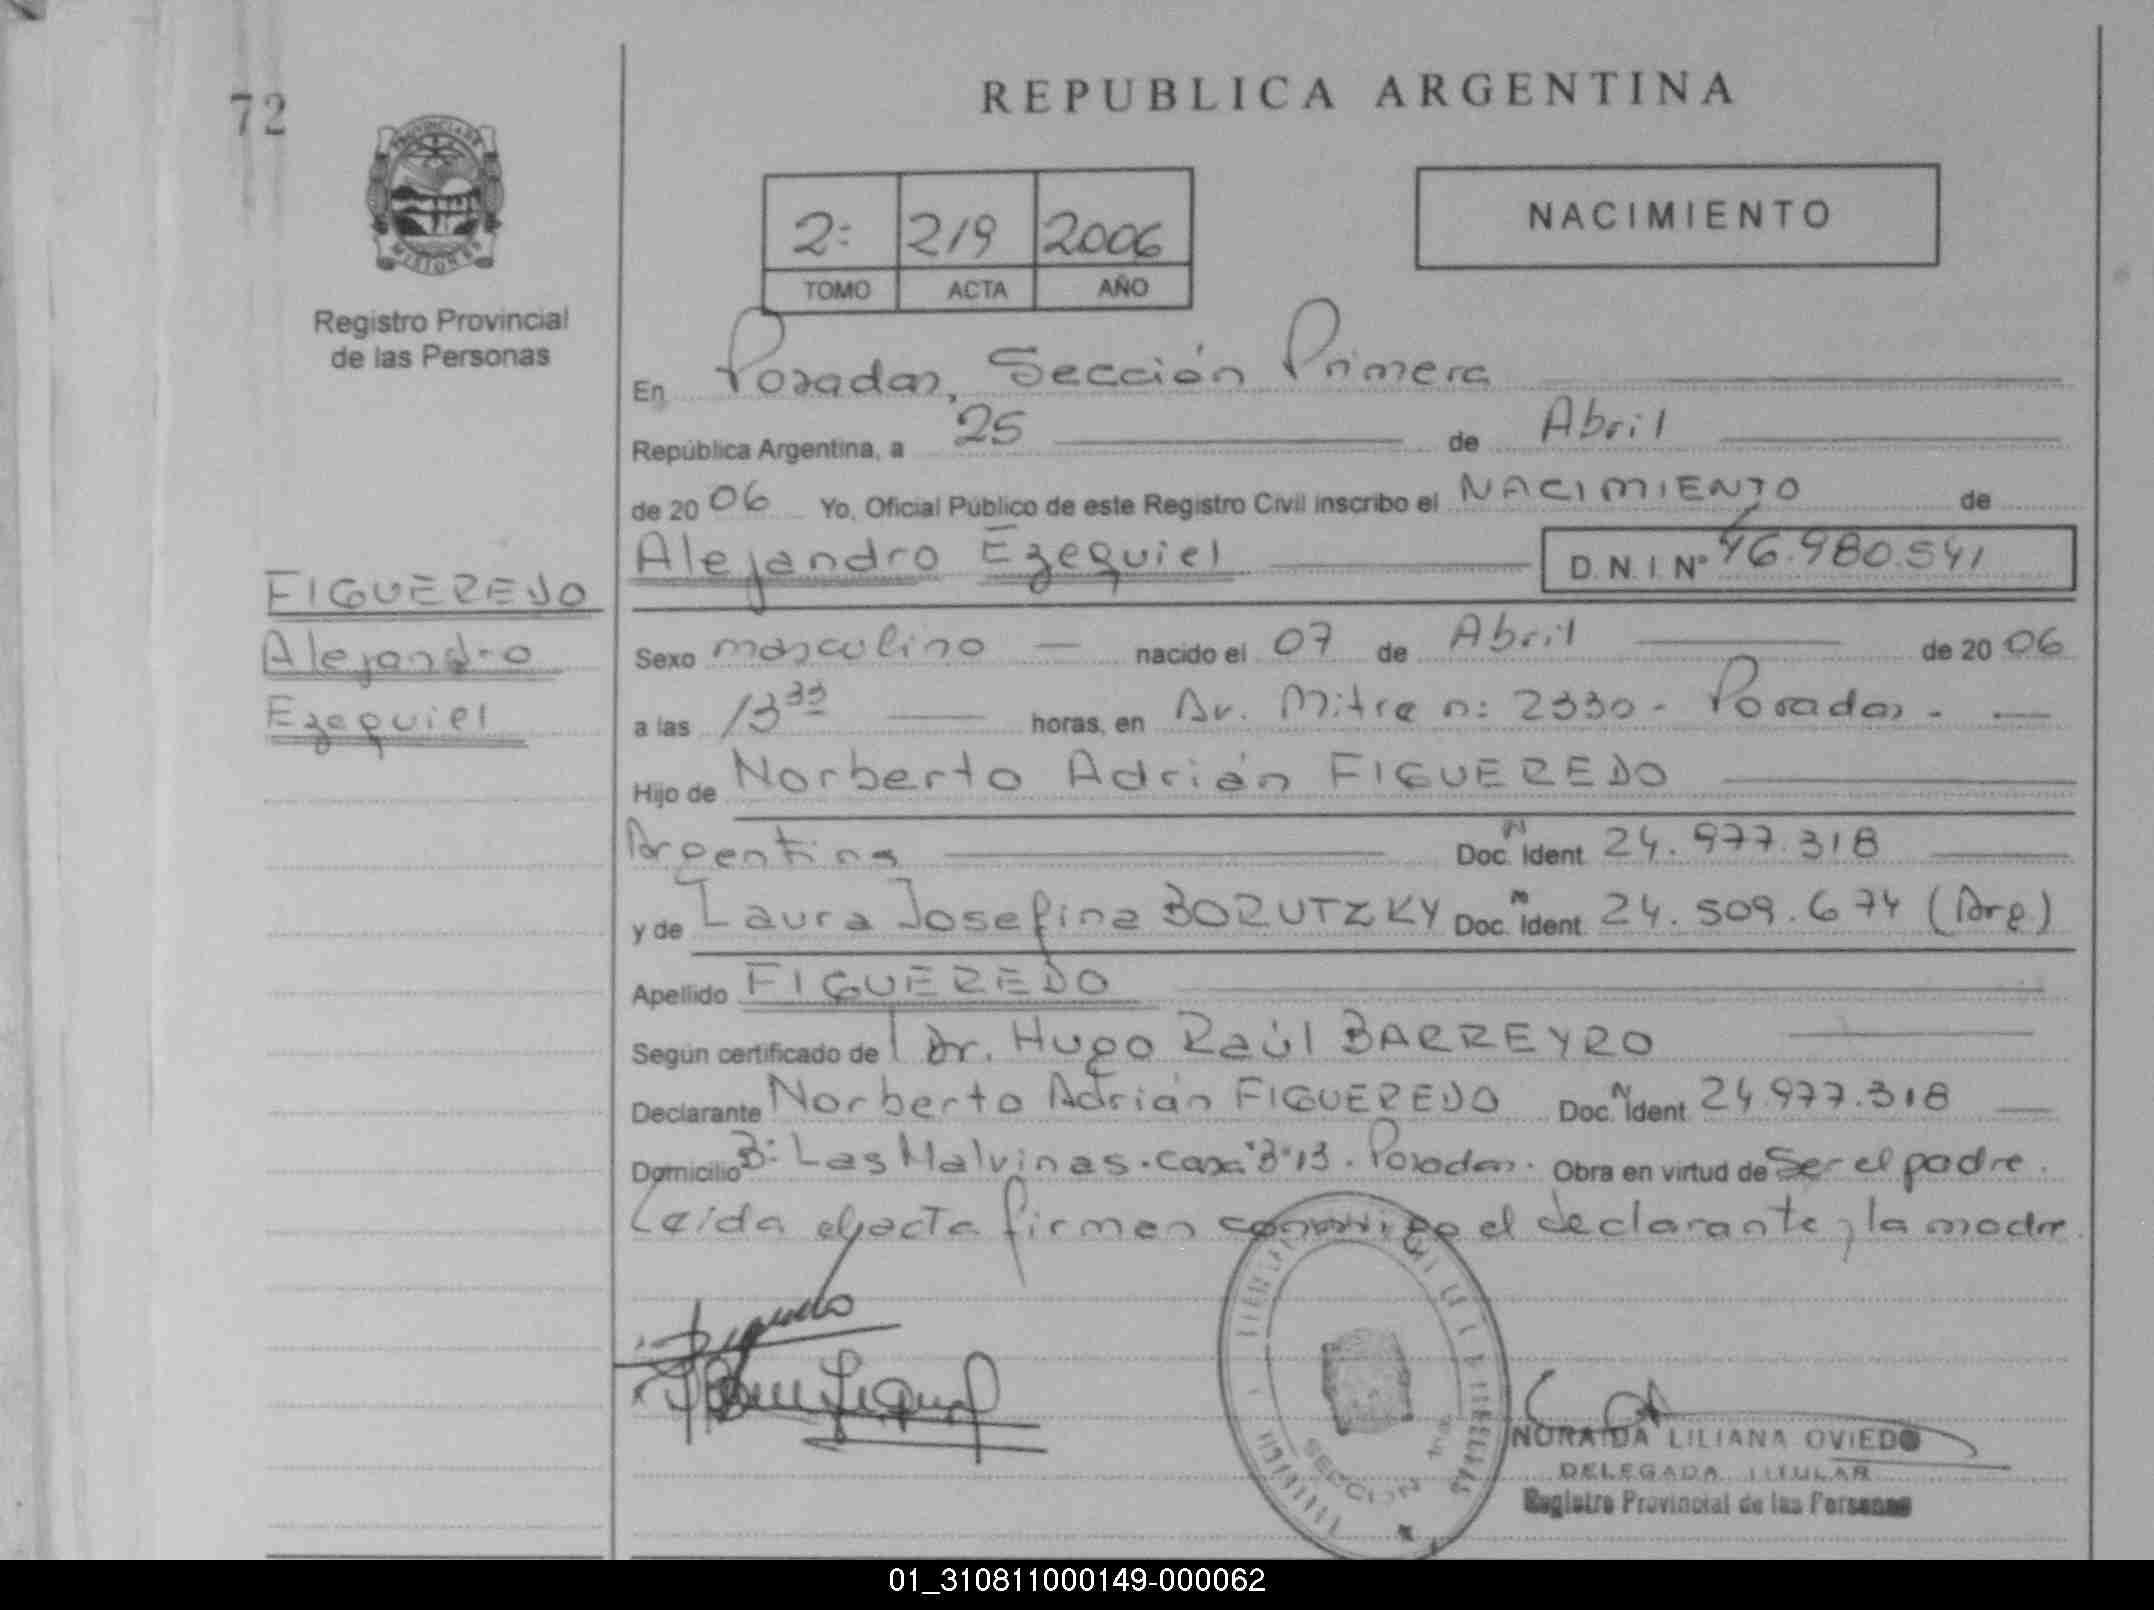 72
REPUBLICA ARGENTINA
PROVINCIA DE
MISIONES
Registro Provincial
de las Personas
2: 219 2006
TOMO ACTA AÑO
NACIMIENTO
En Posadas, Sección Primera
República Argentina, a 25 de Abril
de 2006 Yo, Oficial Público de este Registro Civil inscribo el NACIMIENTO de
Alejandro Ezequiel D.N.I. Nº 46.980.541
FIGUEREDO
Alejandro
Ezequiel
Sexo masculino nacido el 07 de Abril de 2006
a las 13 33 horas, en Av. Mitre n: 2330 - Posadas -
Hijo de Norberto Adrián FIGUEREDO
Argentina Doc. N Ident 24.977.318
y de Laura Josefina BORUTZKY Doc. N Ident 24.509.674 (Arg)
Apellido FIGUEREDO
Según certificado de Dr. Hugo Raúl BARREYRO
Declarante Norberto Adrián FIGUEREDO Doc. N Ident 24.977.318
Domicilio B: Las Malvinas. Casa "B" 13. Posadas. Obra en virtud de Ser el padre.
Leída el acta firman conmigo el declarante y la madre
SECCION 1ra
NORAIDA LILIANA OVIEDO
DELEGADA TITULAR
Registro Provincial de las Personas
01_310811000149-000062